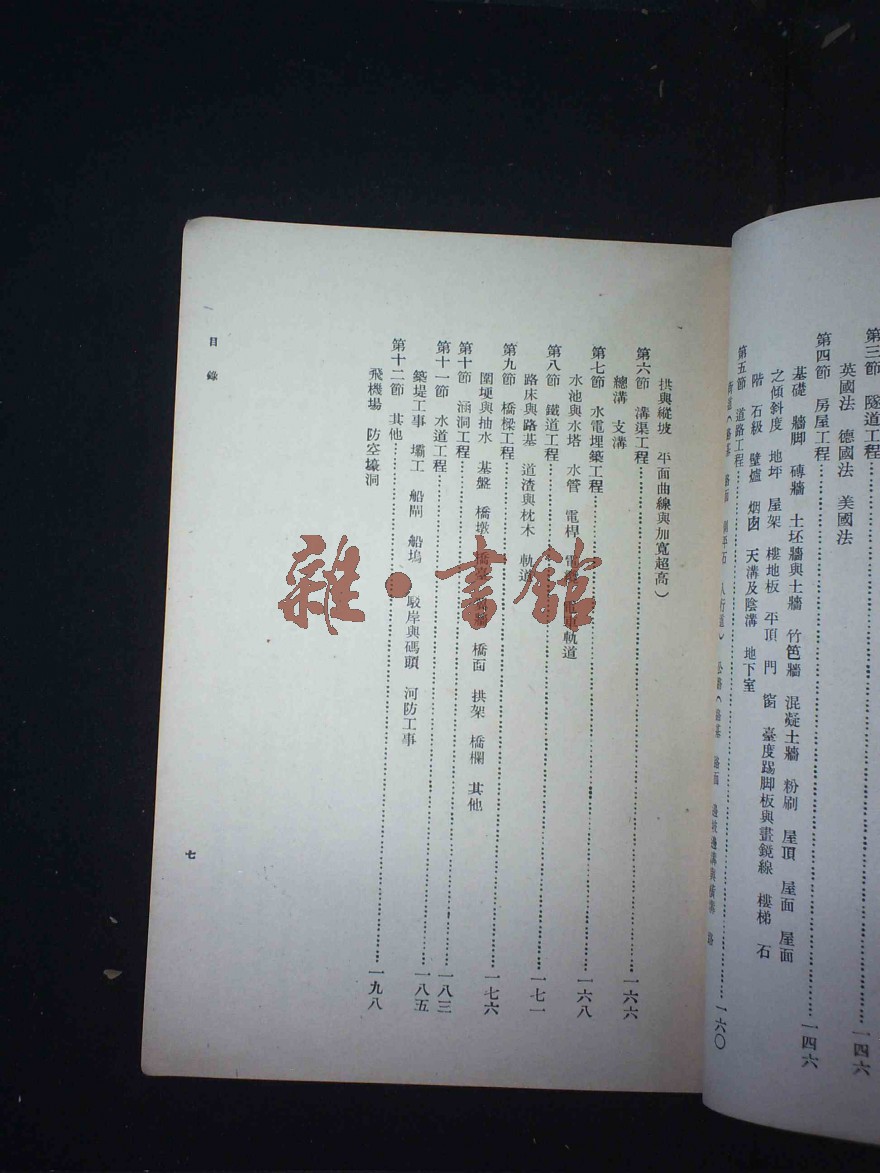 第三節 隧道工程………一四六
英國法 德國法 美國法
第四節 房屋工程………一四六
基礎 牆脚 磚牆 土坯牆與土牆 竹笆牆 混凝土牆 粉刷 屋頂 屋面 屋面
之傾斜度 地坪 屋架 樓地板 平頂 門 窗 臺度踢脚板與畫鏡線 樓梯 石
階 石級 壁爐 烟囱 天溝及陰溝 地下室
第五節 道路工程………一六〇
路基 路面 人行道) 公路(路基 路面 邊坡邊溝與橫溝 路
拱與縱坡 平面曲線與加寬超高)
第六節 溝渠工程………一六六
總溝 支溝
第七節 水電埋築工程………一六八
水池與水塔 水管 電桿 電車軌道
第八節 鐵道工程………一七一
路床與路基 道渣與枕木 軌道
第九節 橋樑工程………一七六
圍埂與抽水 基盤 橋墩 橋臺 橋面 拱架 橋欄 其他
第十節 涵洞工程………一八三
第十一節 水道工程………一八五
築堤工事 壩工 船閘 船塢 駁岸與碼頭 河防工事
第十二節 其他………一九八
飛機場 防空壕洞
目錄
七
雜·書館